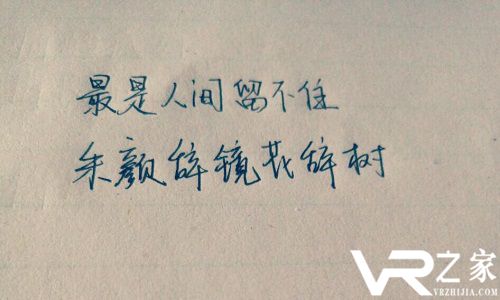 最是人间留不住
朱颜辞镜花辞树
VR之家
VRZHIJIA.COM